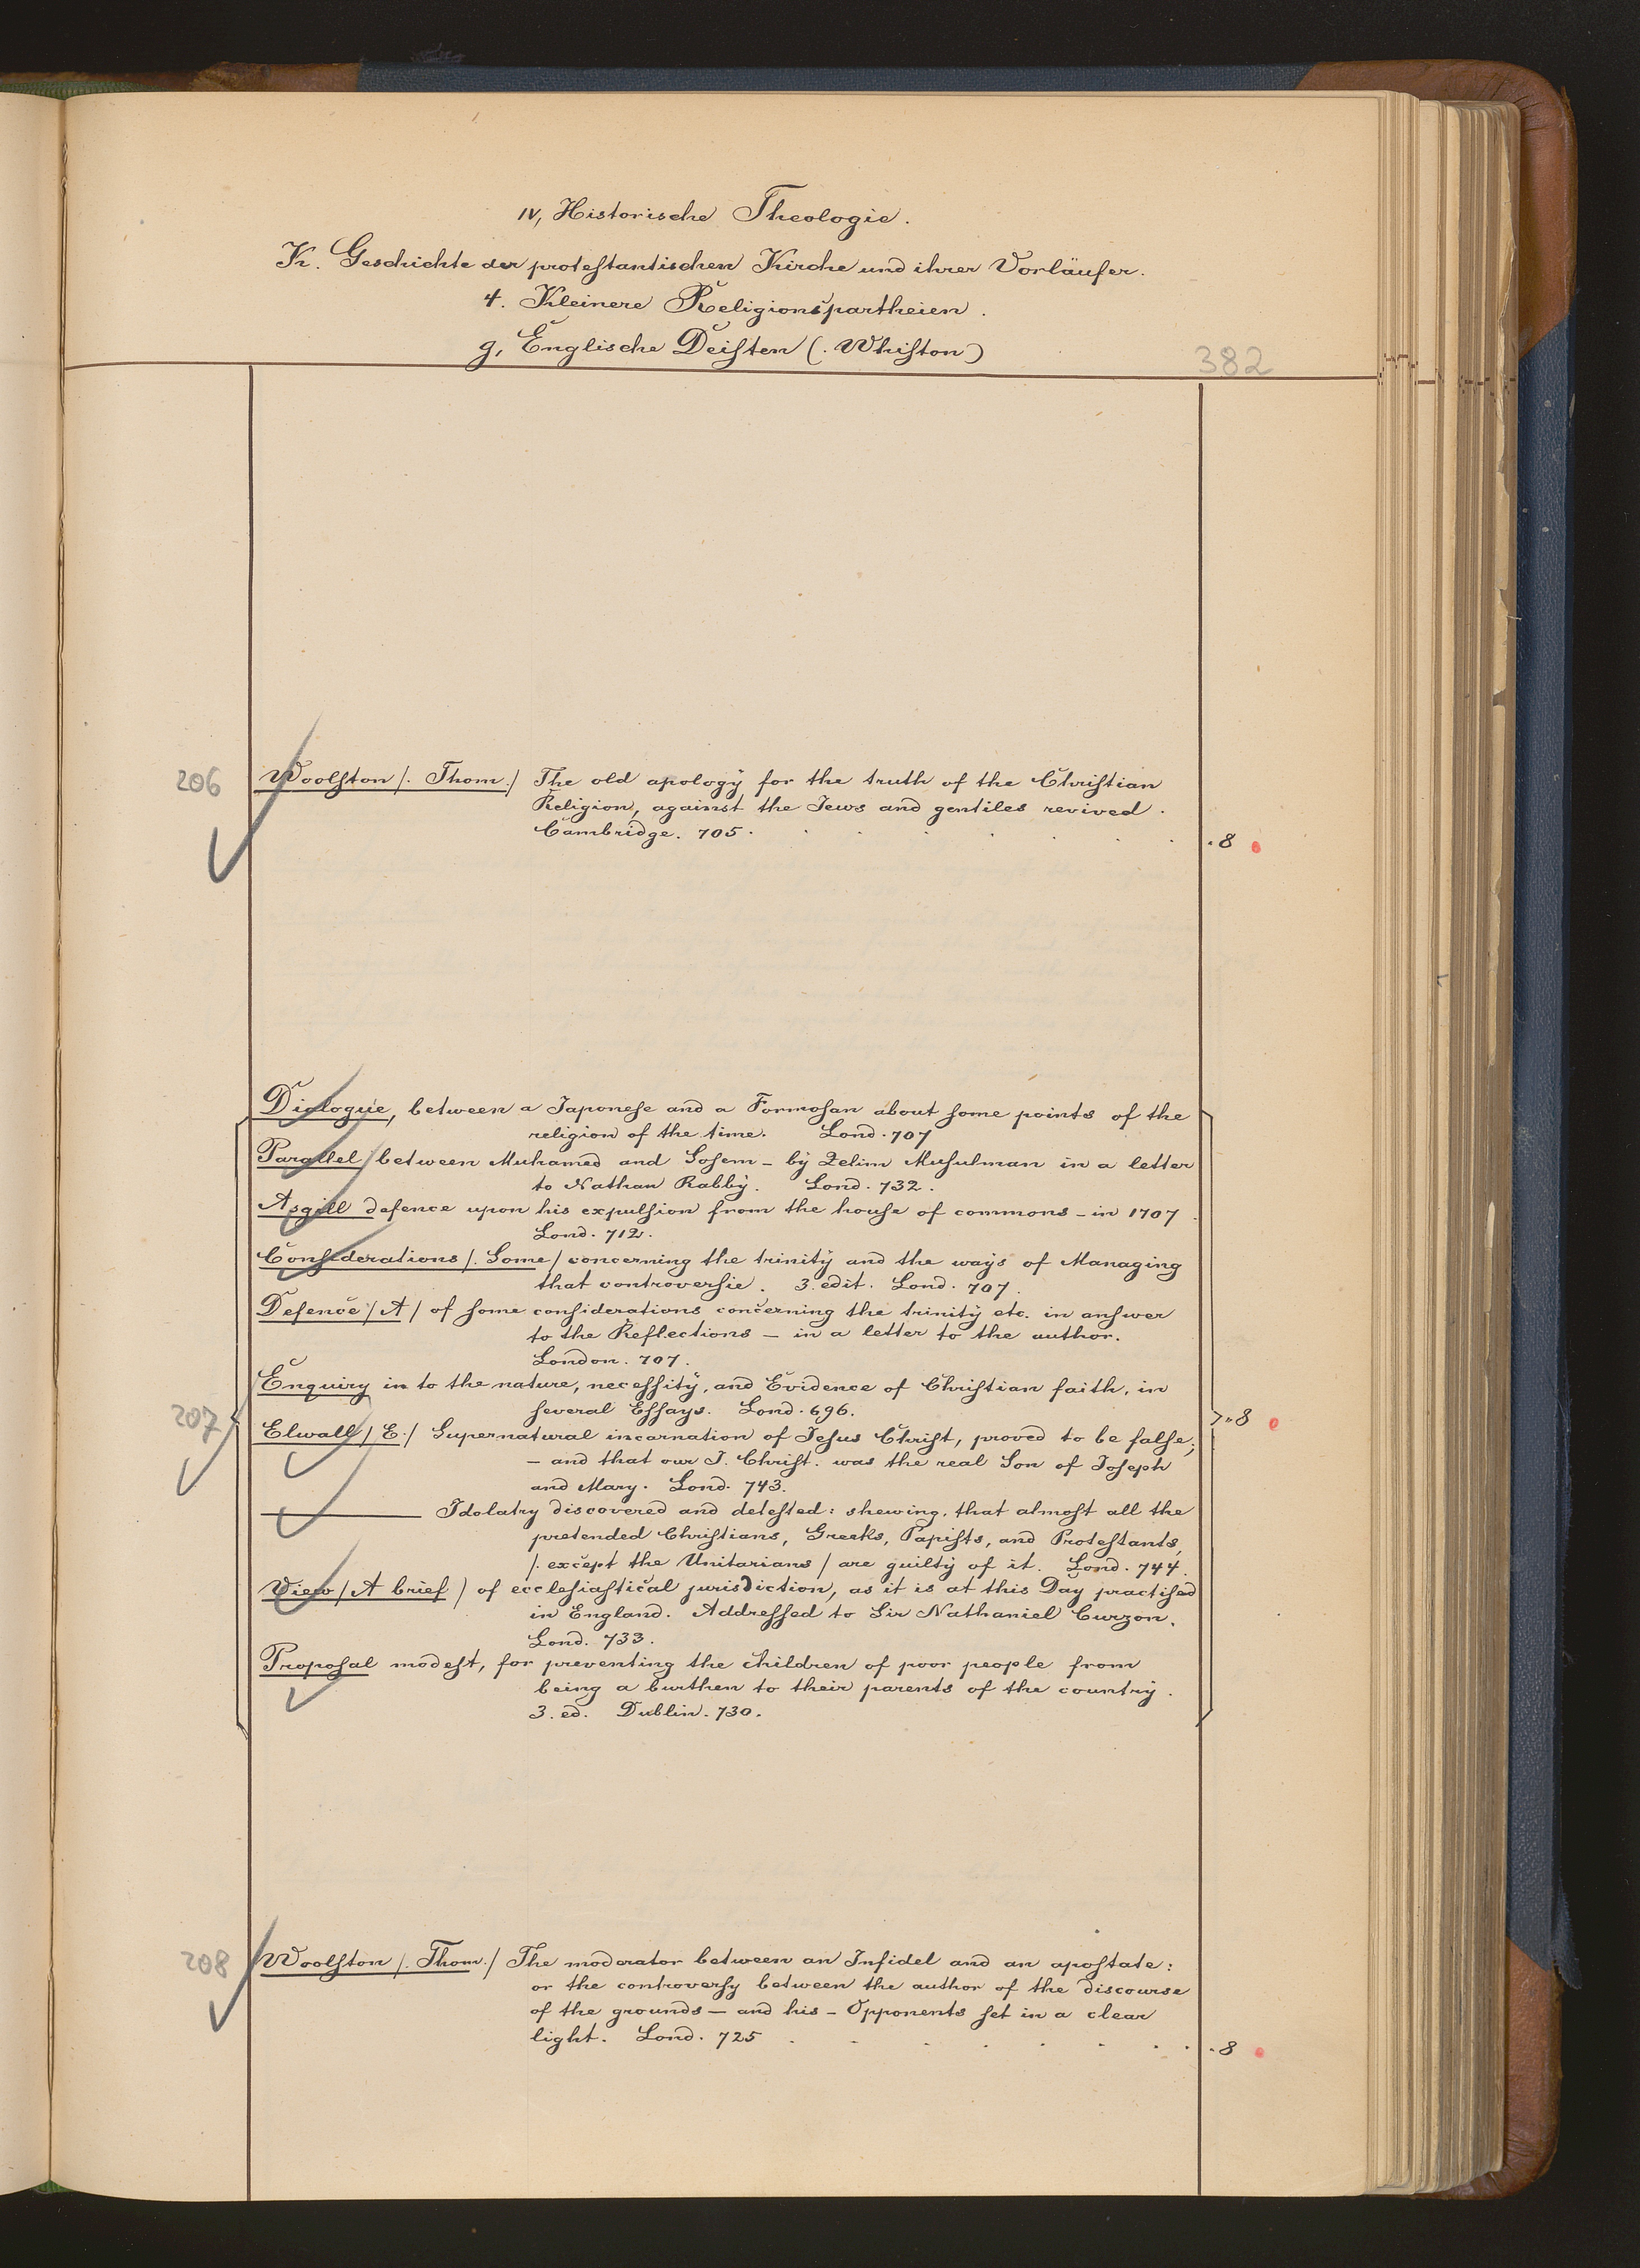 IV, Historische Theologie.
K. Geschichte der protestantischen Kirche und ihrer Vorläufer.
4. Kleinere Religionspartheien.
g, Englische Deisten (. Whiston)
382
206
Woolston /. Thom./ The old apology for the truth of the Christian
Religion, against the Jews and gentiles revived.
Cambridge. 705.
. 8
Dialogue, between a Japonese and a Formosan about some points of the
religion of the time. Lond. 707
Parallel / between Muhamed and Sosem - by Zelim Musulman in a letter
to Nathan Rabby. Lond. 732.
Asgill defence upon his expulsion from the house of commons - in 1707.
Lond. 712.
Considerations /. Some / concerning the trinity and the ways of Managing
that controversie. 3. edit. Lond. 707.
Defence / A / of some considerations concerning the trinity etc. in answer
to the Reflections - in a letter to the author.
London. 707.
Enquiry in to the nature, necessity, and Evidence of Christian faith, in
several Essays. Lond. 696.
207
. 8
Elwall / E./ Supernatural incarnation of Jesus Christ, proved to be false;
- and that our J. Christ. was the real Son of Joseph
and Mary. Lond. 743.
——— Idolatry discovered and detested: shewing, that almost all the
pretended Christians, Greeks, Papists, and Protestants,
/. except the Unitarians / are guilty of it. Lond. 744.
View / A brief / of ecclesiastical jurisdiction, as it is at this Day practised
in England. Addressed to Sir Nathaniel Curzon.
Lond. 733.
Proposal modest, for preventing the children of poor people from
being a burthen to their parents of the country.
3. ed. Dublin. 730.
208
Woolston /. Thom./ The moderator between an Infidel and an apostate:
or the controversy between the author of the discourse
of the grounds - and his - Opponents set in a clear
light. Lond. 725
. 8